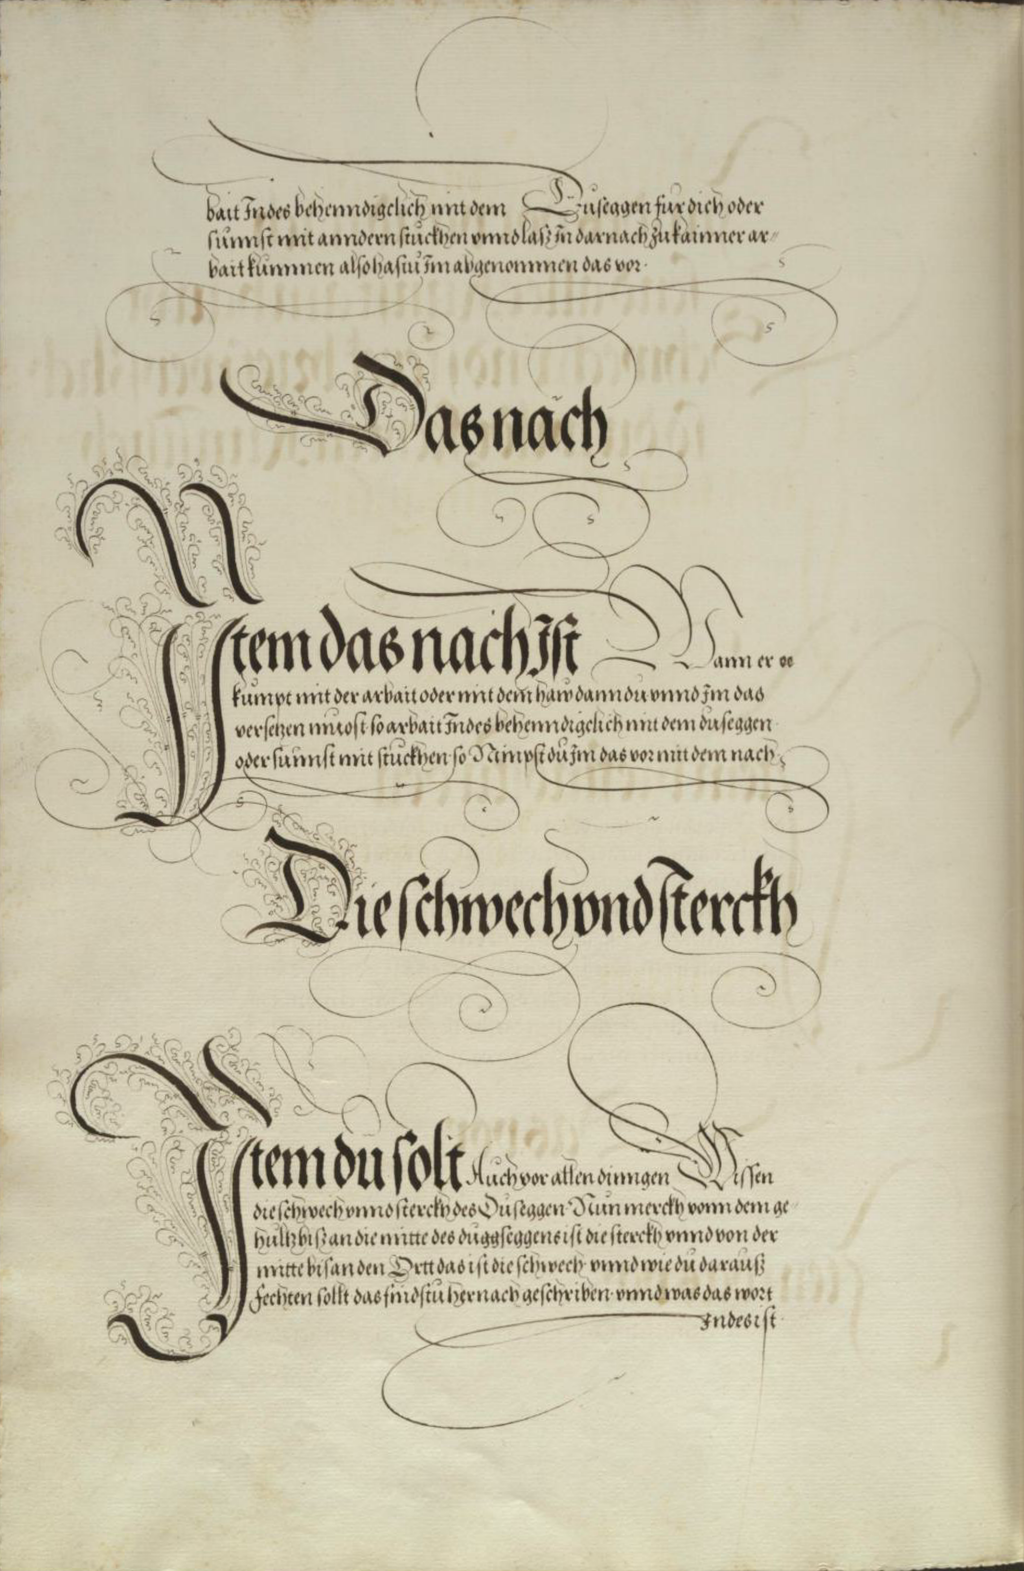 bait Indes behenndigclich mit dem Duseggen fur dich oder
sunnst mit anndern stuckhen vnnd lasz In darnach zu kainner ar-
bait kummen also hastu Im abgenommen das vor.
Das nach
Item das nach Ist Wann er ee
kumpt mit der arbait oder mit dem haw dann du vnnd Im das
versetzen muost so arbait Indes behenndigclich mit dem duseggen
oder sunnst mit stuckhen so Nimpst du Im das vor mit dem nach
Die schwech vnd sterckh
Item du solt Auch vor allen dinngen Wissen
die schwech vnnd sterckh des Duseggen Nun merckh vonn dem ge-
hultz bisz an die mitte des duggseggens ist die sterckh vnnd von der
mitte bis an den Ortt das ist die schwech vnnd wie du darausz
Fechten sollt das findstu hernach geschriben vnnd was das wort
Indes ist